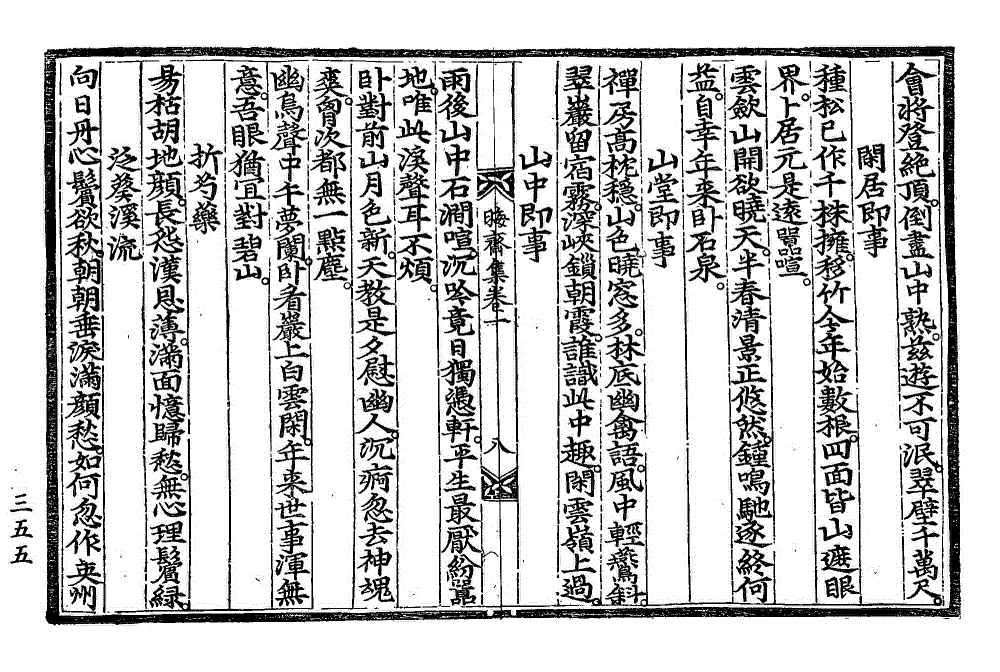 會將登絶頂。倒盡山中熟。玆遊不可泯。翠壁千萬尺。
閑居即事
種松已作千株擁。移竹今年始數根。四面皆山遮眼
界。卜居元是遠囂喧。
雲歛山開欲曉天。半春清景正悠然。鍾鳴馳逐終何
益。自幸年來卧石泉。
山堂即事
禪房高枕穩。山色曉窓多。林底幽禽語。風中輕燕斜。
翠巖留宿霧。深峽鎖朝霞。誰識此中趣。閑雲嶺上過。
山中即事
晦齋集卷一
八
雨後山中石澗喧。沉吟竟日獨憑軒。平生最厭紛囂
地。唯此溪聲耳不煩。
卧對前山月色新。天敎是夕慰幽人。沉痾忽去神魂
爽。胷次都無一點塵。
幽鳥聲中午夢闌。卧看巖上白雲閑。年來世事渾無
意。吾眼猶宜對碧山。
折芍藥
易枯胡地顔。長恐漢恩薄。滿面憶歸愁。無心理鬢綠。
泛葵溪流
向日丹心鬢欲秋。朝朝垂淚滿顔愁。如何忽作英州
三五五